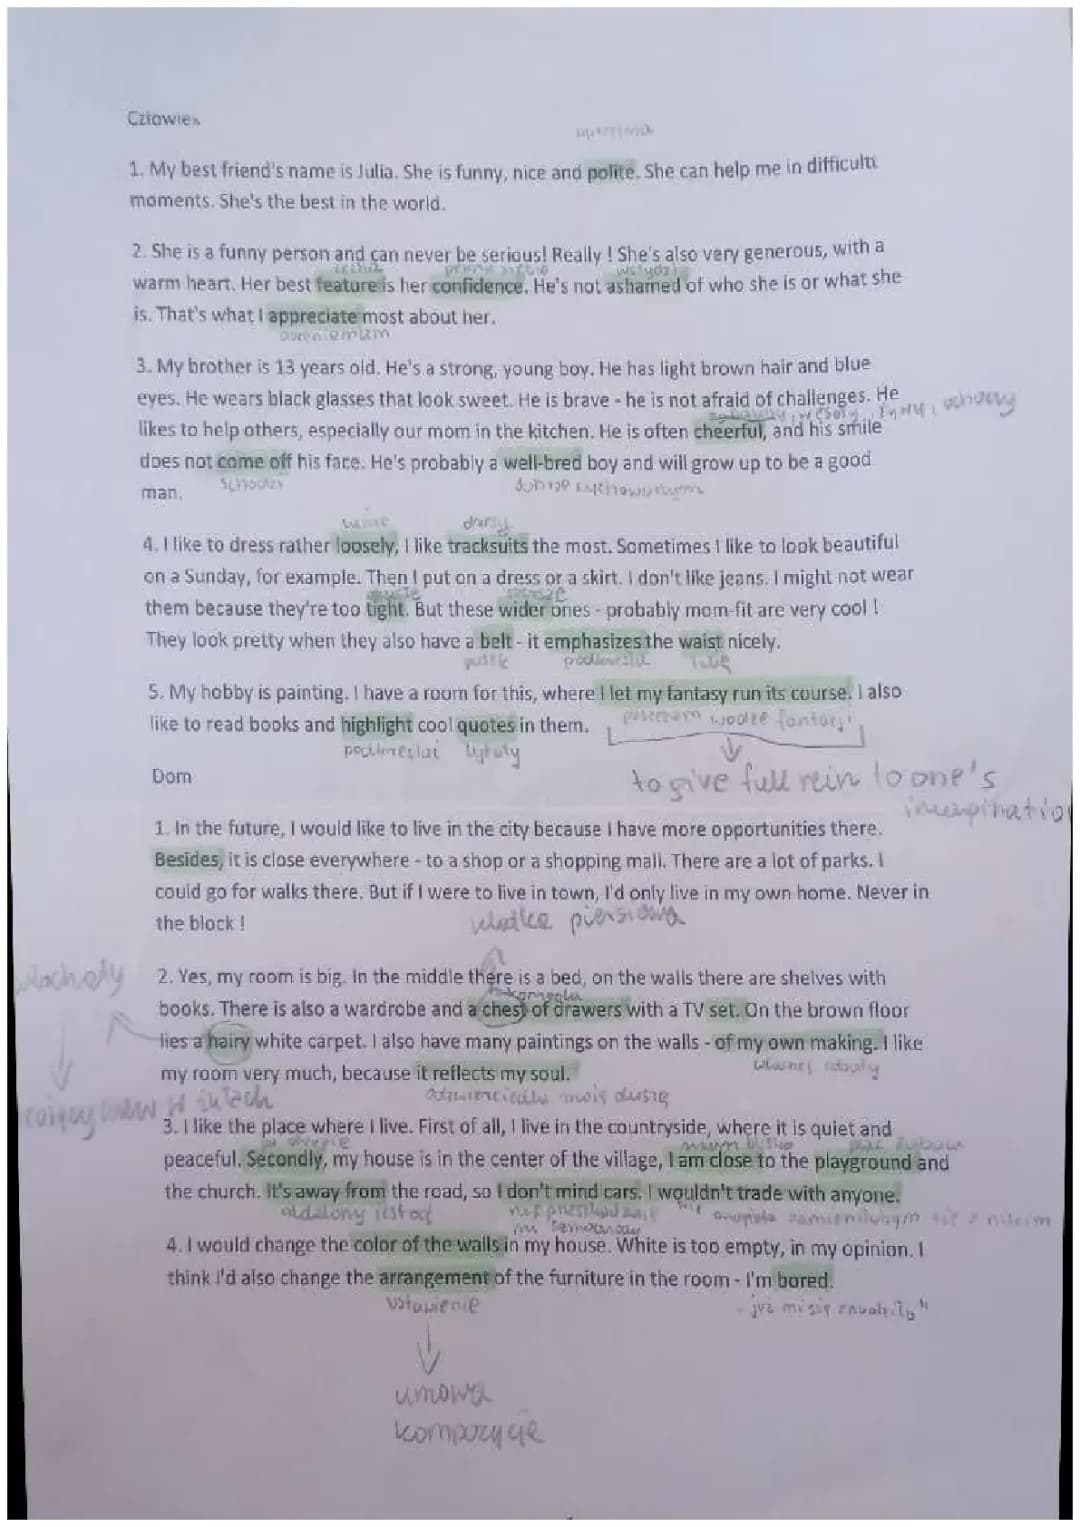 Człowiek
1. My best friend's name is Julia. She is funny, nice and polite. She can help me in difficult
moments. She's the best in the world.
2. She is a funny person and can never be serious! Really ! She's also very generous, with a
cecha pewność siebie wstydzi
warm heart. Her best feature is her confidence. He's not ashamed of who she is or what she
is. That's what I appreciate most about her.
3. My brother is 13 years old. He's a strong, young boy. He has light brown hair and blue
eyes. He wears black glasses that look sweet. He is brave - he is not afraid of challenges. He
wesoły, żywy, ochoczy
likes to help others, especially our mom in the kitchen. He is often cheerful, and his smile
does not come off his face. He's probably a well-bred boy and will grow up to be a good
schodzi dobrze wychowanym
man.
luźne dresy
4. I like to dress rather loosely, I like tracksuits the most. Sometimes I like to look beautiful
on a Sunday, for example. Then I put on a dress or a skirt. I don't like jeans. I might not wear
them because they're too tight. But these wider ones - probably mom-fit are very cool !
They look pretty when they also have a belt - it emphasizes the waist nicely.
pasek podkreśla talię
5. My hobby is painting. I have a room for this, where I let my fantasy run its course. I also
like to read books and highlight cool quotes in them.
puszczam wodze fantazji
podkreślać cytaty
to give full rein to one's
Dom
1. In the future, I would like to live in the city because I have more opportunities there.
Besides, it is close everywhere - to a shop or a shopping mall. There are a lot of parks. I
could go for walks there. But if I were to live in town, I'd only live in my own home. Never in
the block !
klatka piersiowa
włochaty
2. Yes, my room is big. In the middle there is a bed, on the walls there are shelves with
komoda
books. There is also a wardrobe and a chest of drawers with a TV set. On the brown floor
lies a hairy white carpet. I also have many paintings on the walls - of my own making. I like
my room very much, because it reflects my soul.
własnej roboty
odzwierciedla moją duszę
3. I like the place where I live. First of all, I live in the countryside, where it is quiet and
po drugie mam blisko plac zabaw
peaceful. Secondly, my house is in the center of the village, I am close to the playground and
the church. It's away from the road, so I don't mind cars. I wouldn't trade with anyone.
oddalony jest od nie przeszkadzają mi samochody zamieniłabym się z nikim
4. I would change the color of the walls in my house. White is too empty, in my opinion. I
think I'd also change the arrangement of the furniture in the room - I'm bored.
ustawienie
już mi się znudziło"
umowa
kompozycje